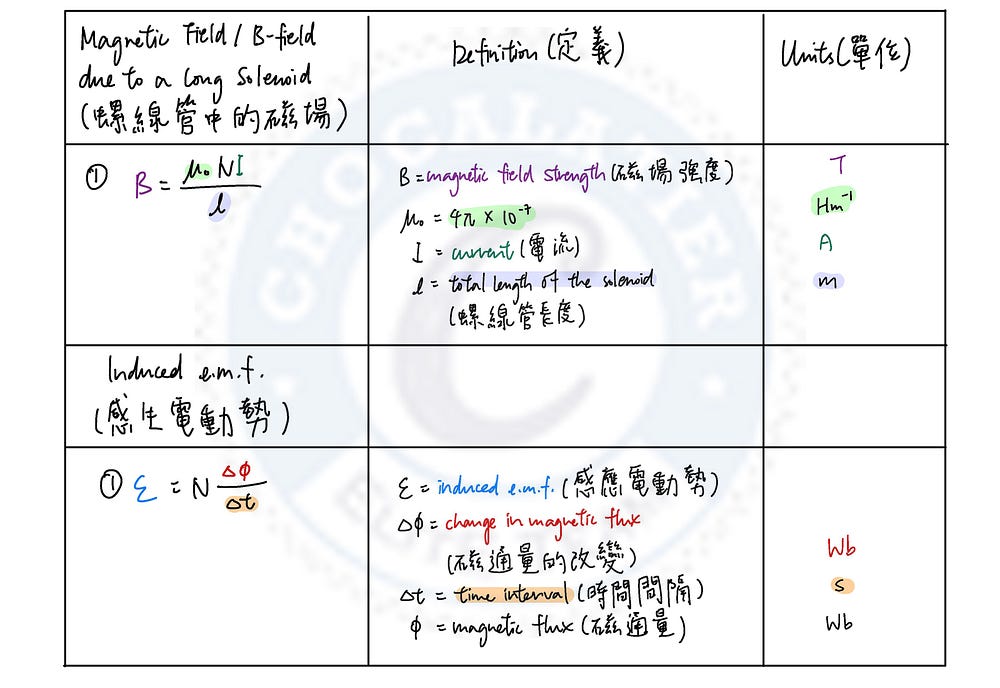 Magnetic Field / B-field
due to a long solenoid
(螺線管中的磁場)
Definition (定義)
Units (單位)
① B = μ₀NI / l
B = magnetic field strength (磁場強度)
T
μ₀ = 4π × 10⁻⁷
Hm⁻¹
I = current (電流)
A
l = total length of the solenoid
m
(螺線管長度)
Induced e.m.f.
(感生電動勢)
① ε = N Δφ / Δt
ε = induced e.m.f. (感應電動勢)
Δφ = change in magnetic flux
(磁通量的改變)
Wb
Δt = time interval (時間間隔)
s
φ = magnetic flux (磁通量)
Wb